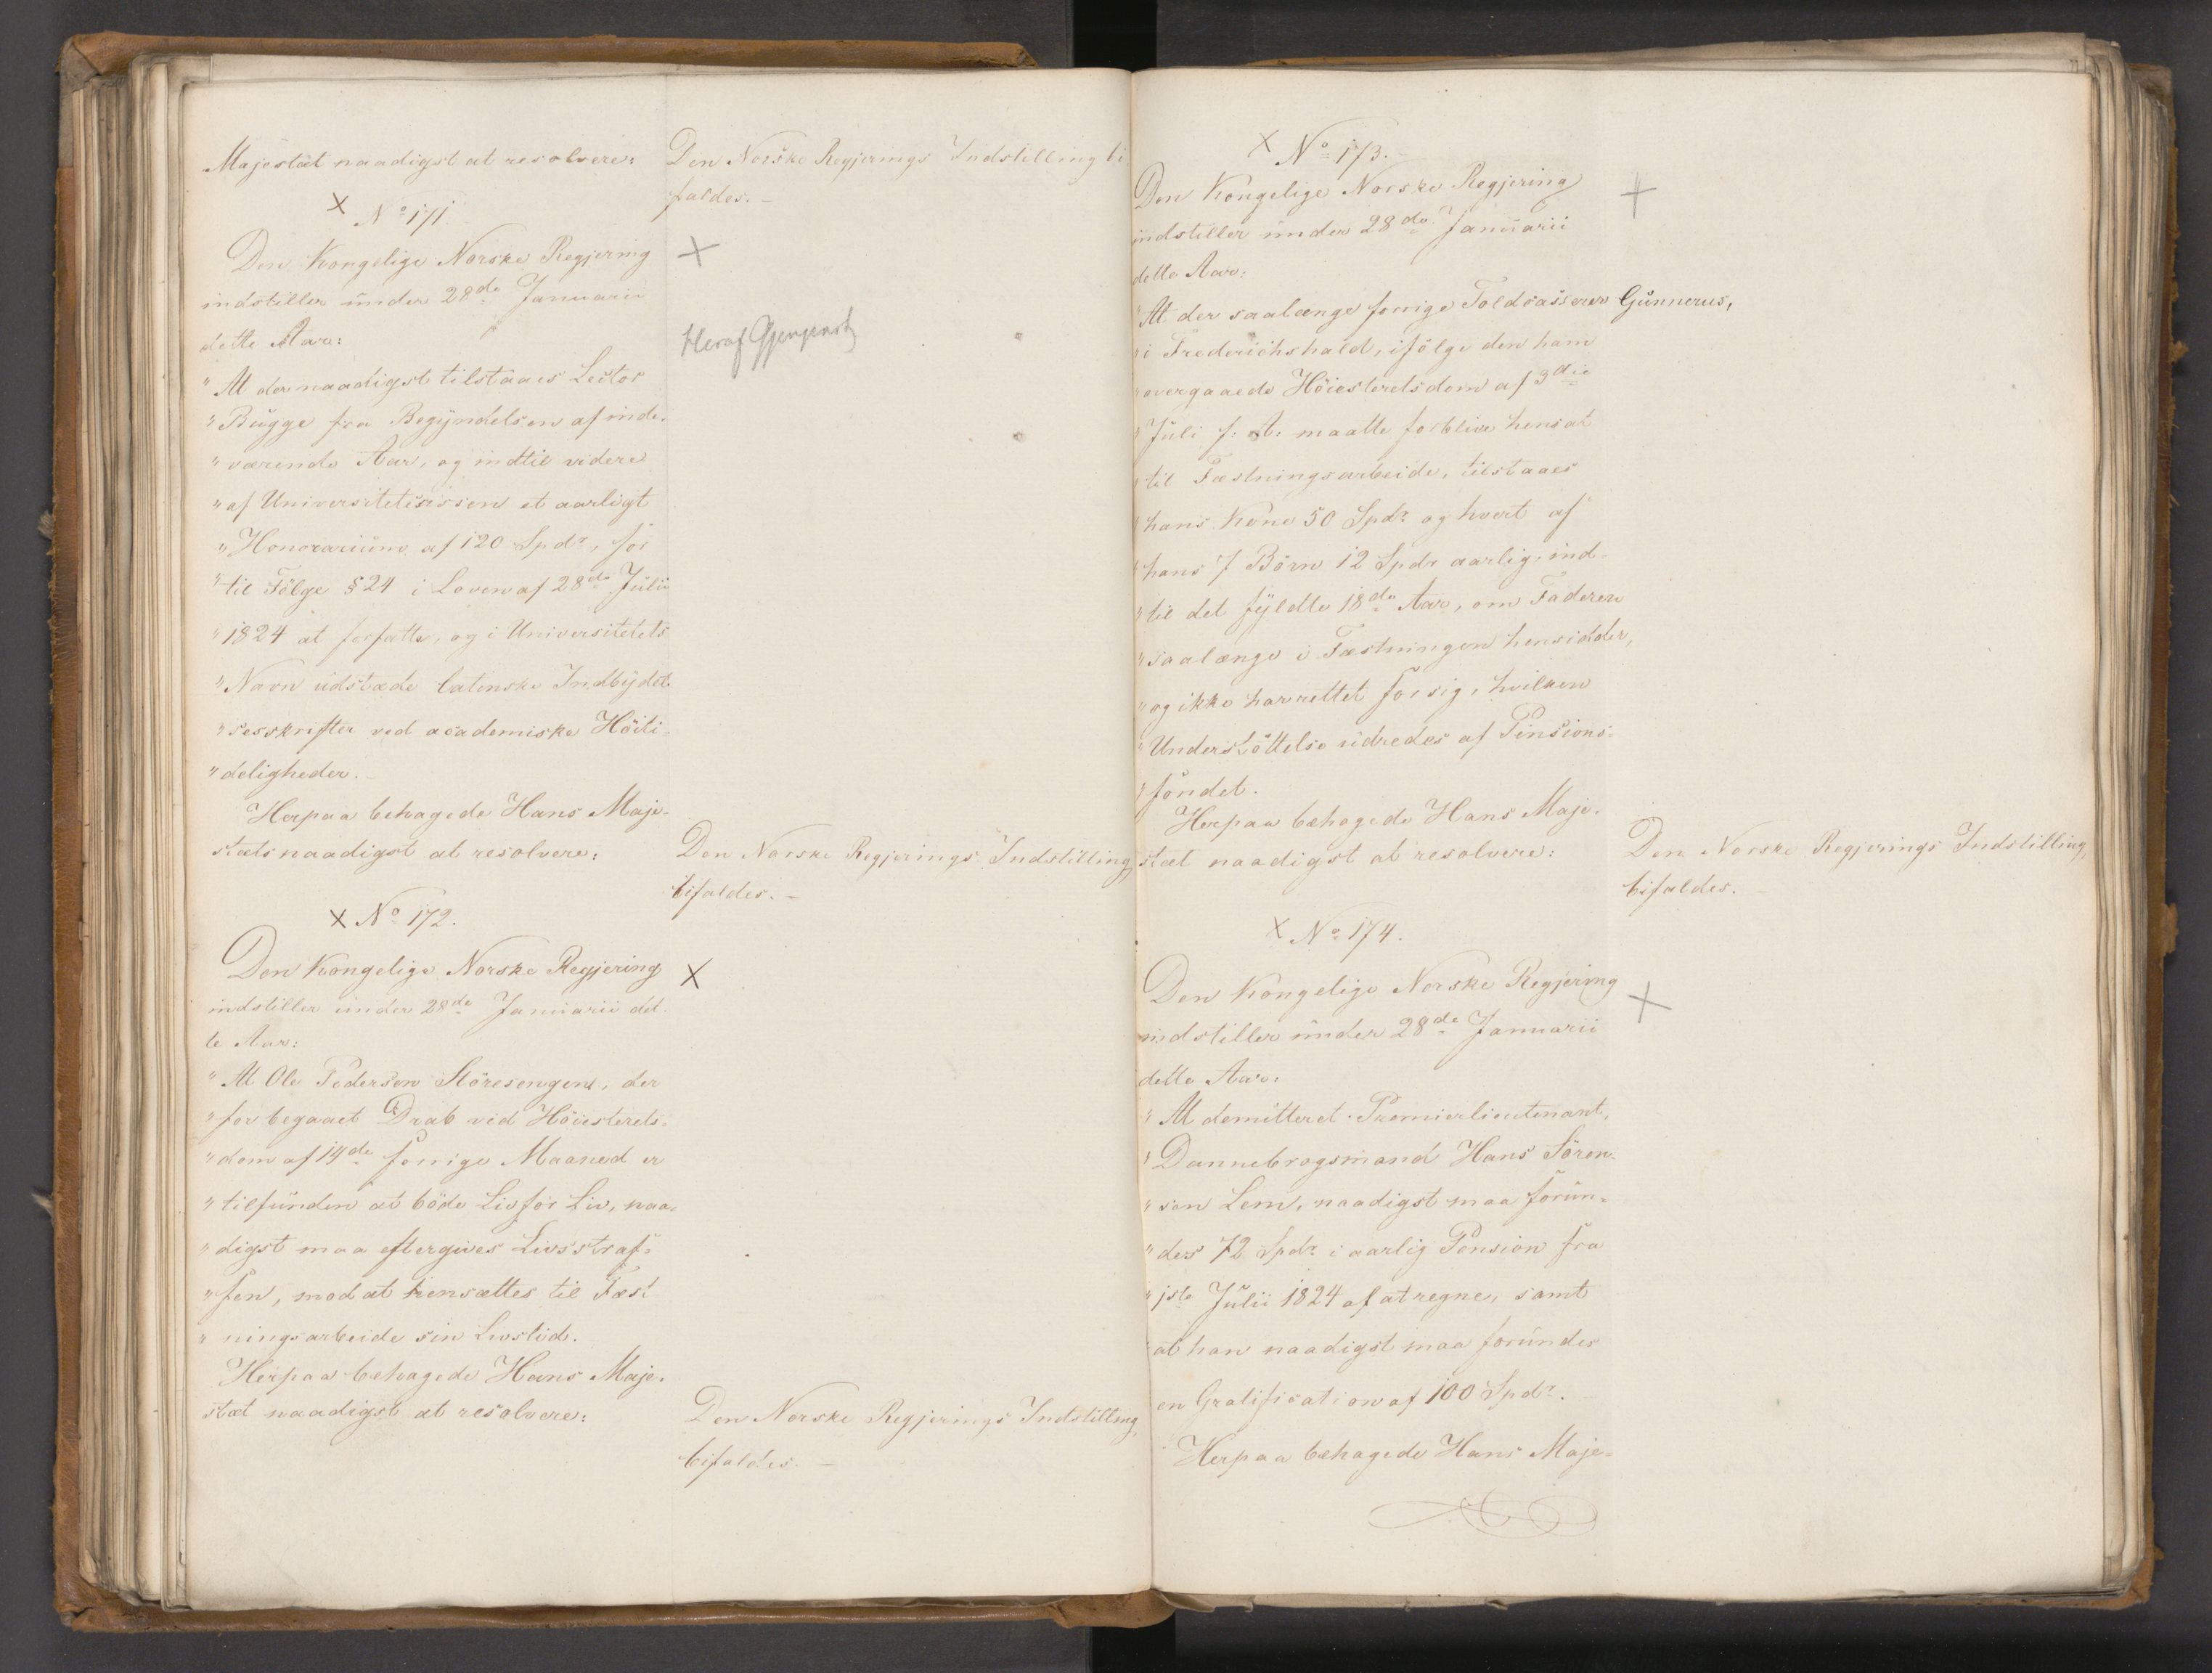 Majestæt naadigst at resolvere:
Den Norske Regjerings Indstilling bi
faldes. –
× No 171
Den Kongelige Norske Regjering
indstiller under 28de Januarii
dette Aar:
" At der naadigst tilstaaes Lector
" Bugge fra Begyndelsen af inde-
" værende Aar, og indtil videre
" af Universitetscassen et aarligt
" Honorarium af 120 Spdr, for
" til Fölge §24 i Loven af 28de Julii
" 1824 at forfatte, og i Universitetets
" Navn udstæde latinske Indbydel-
" sesskrifter ved academiske Höiti-
" deligheder. –
Herpaa behagede Hans Maje-
stæt naadigst at resolvere:
×
Heraf Gjenpart
Den Norske Regjerings Indstilling
bifaldes. –
× No 172.
Den Kongelige Norske Regjering
indstiller under 28de Januarii det-
te Aar:
" At Ole Pedersen Störesengen, der
" for begaaet Drab ved Höiesterets-
" dom af 14de forrige Maaned er
" tilfunden at böde Liv for Liv, naa-
" digst maa eftergives Livsstraf-
" fen, mod at hensættes til Fæst
" ningsarbeide sin Livstid.
Herpaa behagede Hans Maje-
stæt naadigst at resolvere:
×
Den Norske Regjerings Indstilling,
bifaldes. –
× No 173.
Den Kongelige Norske Regjering
indstiller under 28de Januarii
dette Aar:
" At der saalænge forrige Toldcasserer Gunnerus,
" i Frederichshald, ifölge den ham
" overgaaede Höiesteretsdom af 3die
" Juli f: A: maatte forblive hensat
" til Fæstningsarbeide, tilstaaes
" hans Kone 50 Spdr og hvert af
" hans 7 Börn 12 Spdr aarlig, ind-
" til det fyldte 18de Aar, om Faderen
" saalænge i Fæstningen hensidder,
" og ikke har rettet for sig, hvilken
" Understöttelse udredes af Pensions-
" fondet.
Herpaa behagede Hans Maje-
stæt naadigst at resolvere:
×
Den Norske Regjerings Indstilling,
bifaldes. –
× No 174.
Den Kongelige Norske Regjering
indstiller under 28de Januarii
dette Aar:
" At demitteret Premierlieutenant,
" Dannebrogsmand Hans Sören-
" sen Lem, naadigst maa forun-
" des 72 Spdr i aarlig Pension fra
" 1ste Julii 1824 af at regne, samt
" at han naadigst maa forundes
en Gratification af 100 Spdr.
Herpaa behagede Hans Maje-
×